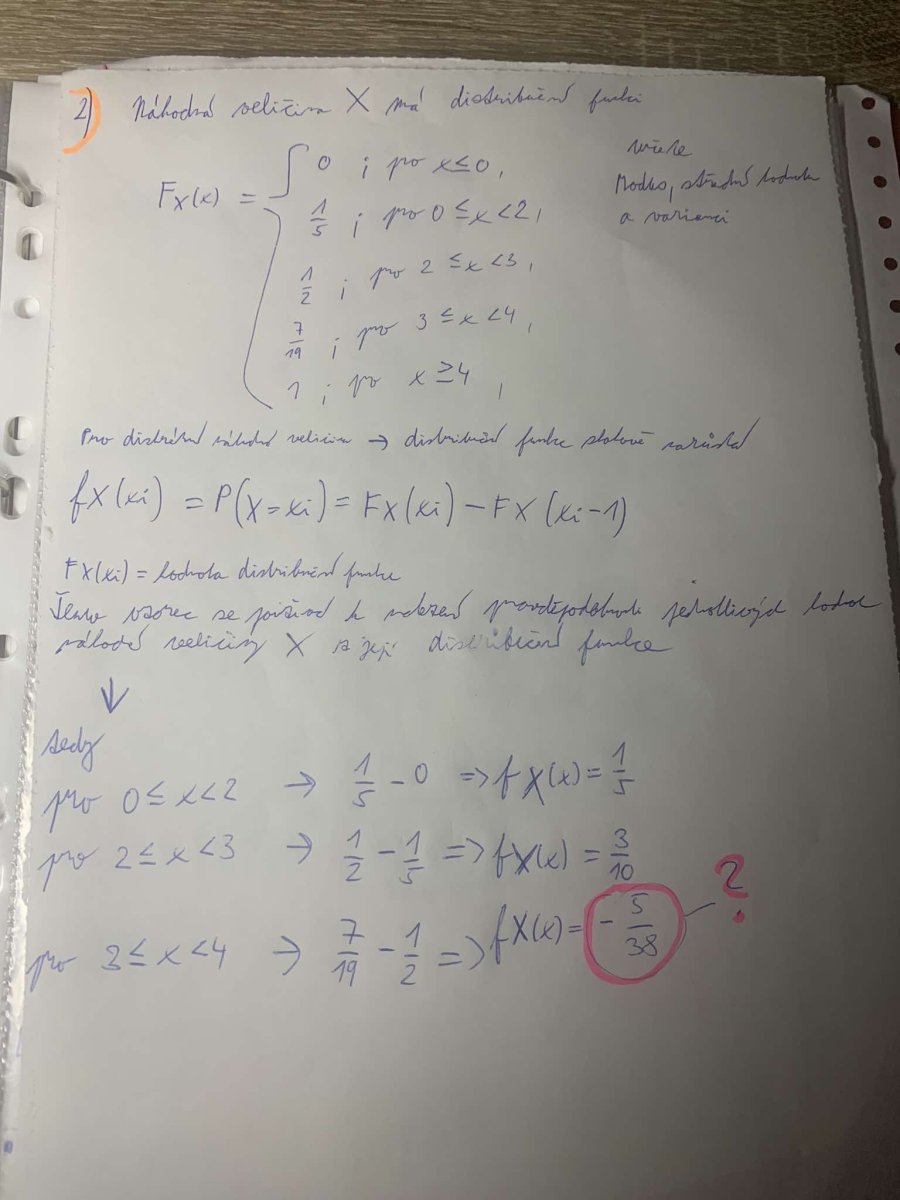 2) Náhodná veličina X má distribuční funkci
určete
Modus, střední hodnotu
a varianci
F_X(x) = { 0 ; pro x ≤ 0,
1/5 ; pro 0 ≤ x < 2,
1/2 ; pro 2 ≤ x < 3,
7/19 ; pro 3 ≤ x < 4,
1 ; pro x ≥ 4,
Pro diskrétní náhodnou veličinu → distribuční funkce skokově narůstá
fX(xi) = P(X=xi) = FX(xi) - FX(xi-1)
FX(xi) = hodnota distribuční funkce
Tento vzorec se používá k nalezení pravděpodobnosti jednotlivých hodnot
náhodné veličiny X z její distribuční funkce
↓
tedy
pro 0 ≤ x < 2 → 1/5 - 0 => fX(x) = 1/5
pro 2 ≤ x < 3 → 1/2 - 1/5 => fX(x) = 3/10
pro 3 ≤ x < 4 → 7/19 - 1/2 => fX(x) = - 5/38 ?